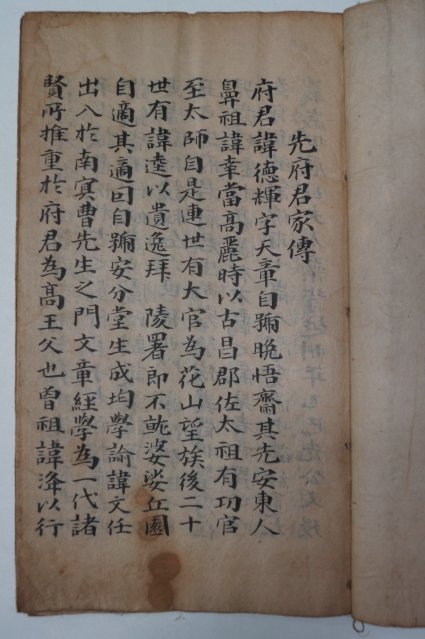 先府君家傳
府君諱德輝字天章自號晩悟齋其先安東人
鼻祖諱幸當高麗時以古昌郡佐太祖有功官
至太師自是連世有大官為花山望族後二十
世有諱逵以遺逸拜 陵署郎不就婆娑丘園
自適其適囙自號安分堂生成均學諭諱文任
出入於南冥曹先生之門文章經學為一代諸
賢所推重於府君為高王父也曾祖諱洚以行